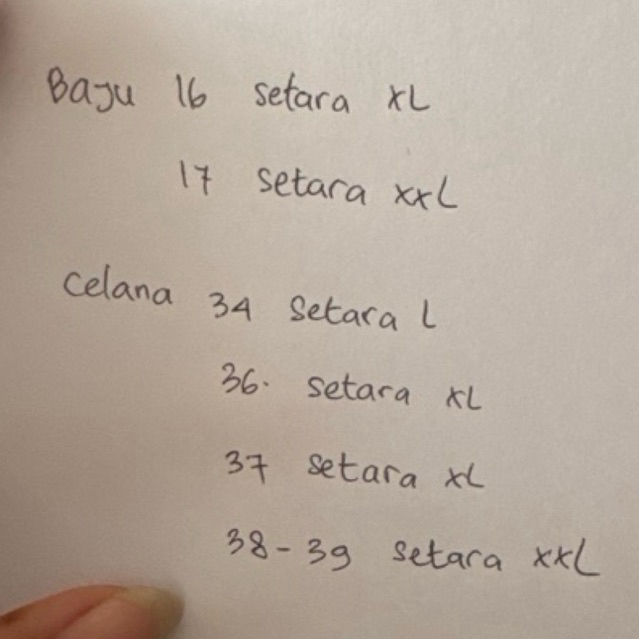 Baju 16 setara XL
17 setara XXL
Celana 34 Setara L
36. setara XL
37 setara XL
38-39 setara XXL